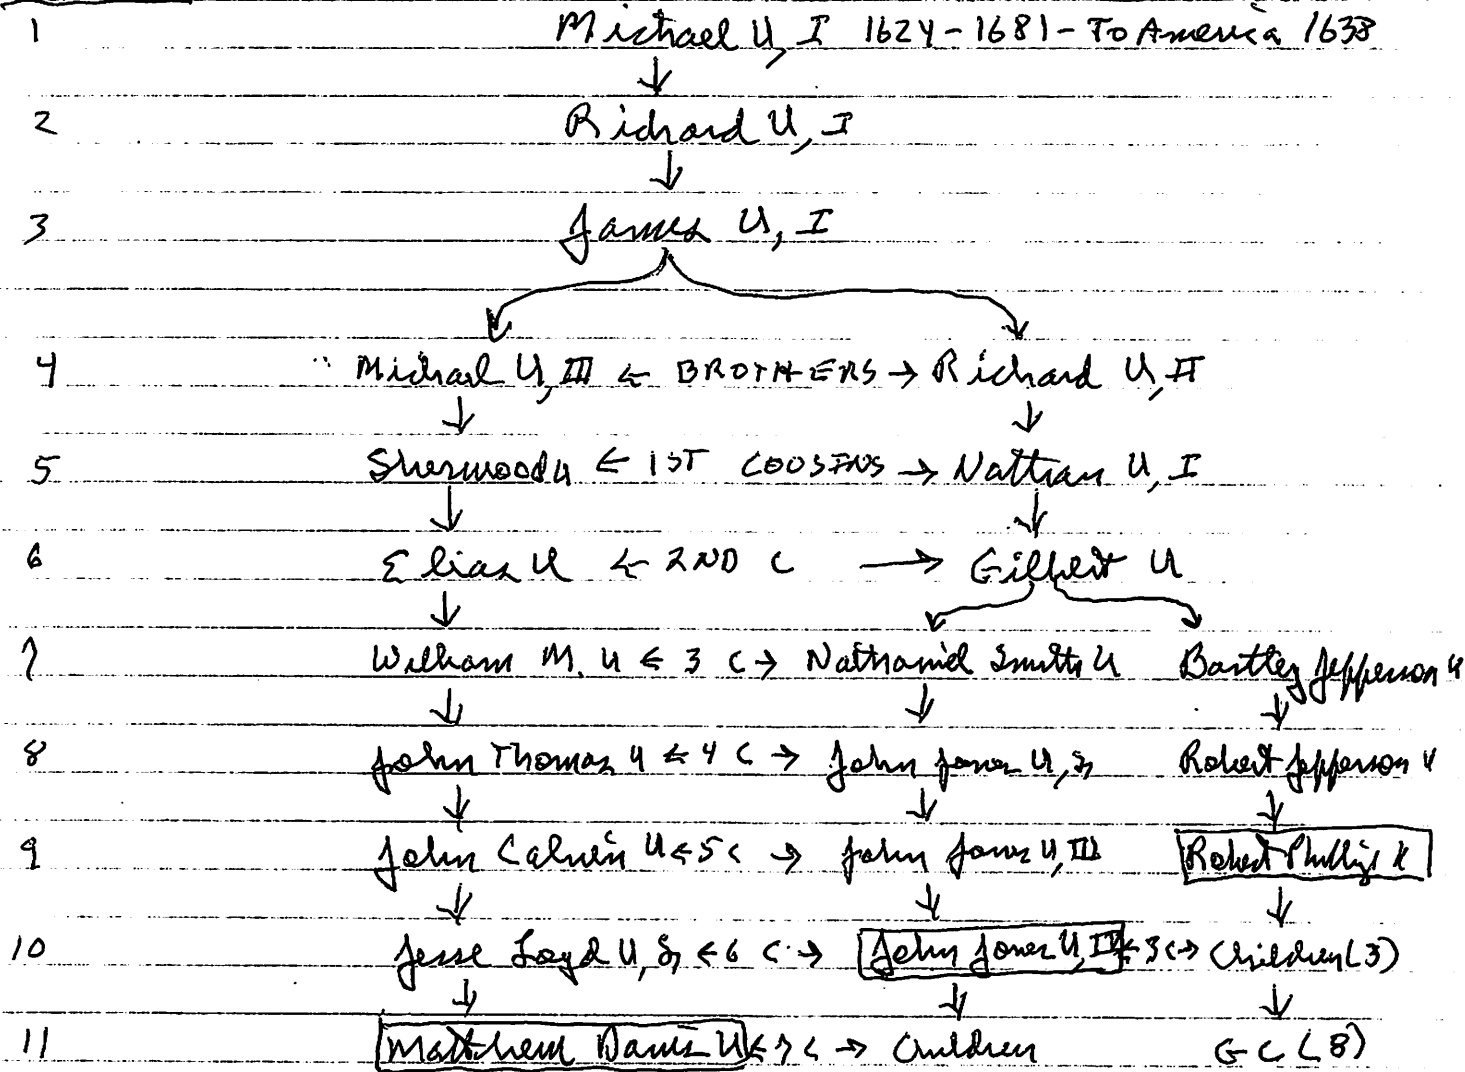 1 Michael U, I 1624-1681-To America 1638
2 Richard U, I
3 James U, I
4 Michael U, III ← BROTHERS → Richard U, II
5 Sherwood U ← 1ST COUSINS → Nathan U, I
6 Elias U ← 2ND C → Gilbert U
7 William M. U ← 3 C → Nathaniel Smith U Bartley Jefferson U
8 John Thomas U ← 4 C → John Jones U, Sr Robert Jefferson U
9 John Calvin U ← 5 C → John Jones U, III Robert Phillips U
10 Jesse Loyd U, Sr ← 6 C → John Jones U, IV ← 3 C → Children (3)
11 Matthew Davis U ← 7 C → Children GC (8)